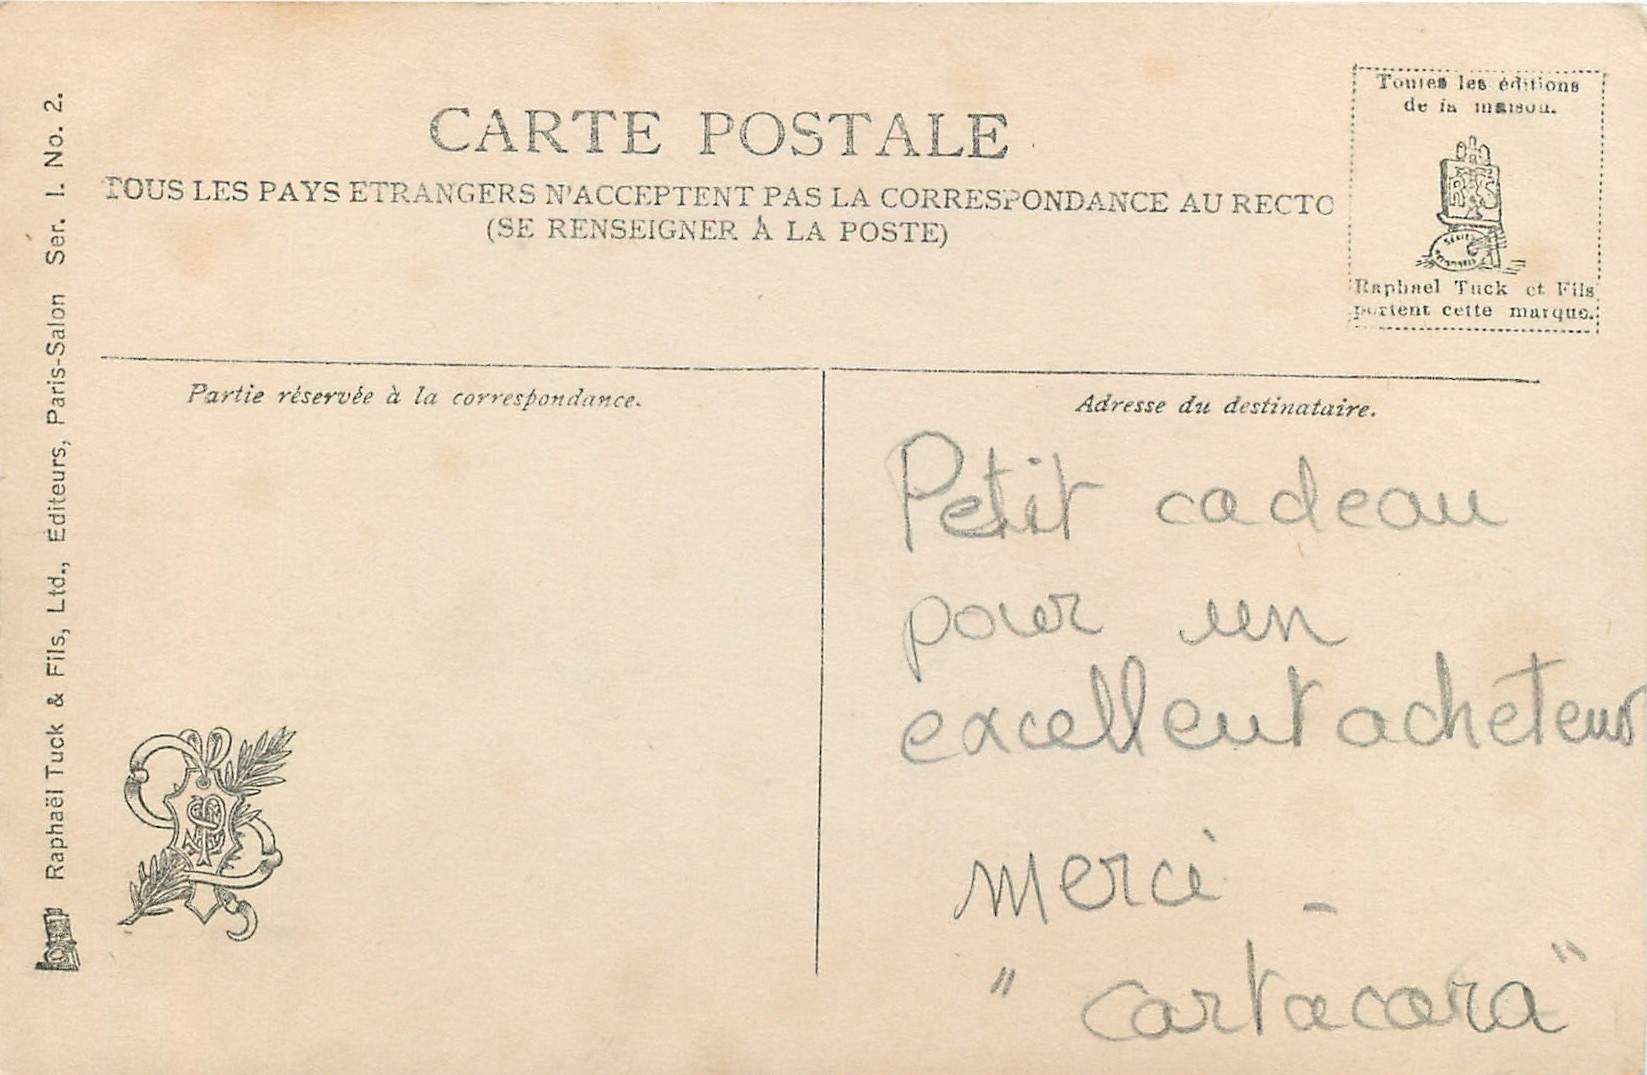 CARTE POSTALE
TOUS LES PAYS ETRANGERS N'ACCEPTENT PAS LA CORRESPONDANCE AU RECTO
(SE RENSEIGNER À LA POSTE)
Toutes les éditions
de la maison.
Raphael Tuck et Fils
portent cette marque.
Raphaël Tuck & Fils, Ltd., Éditeurs, Paris-Salon Ser. I. No. 2.
Partie réservée à la correspondance.
Adresse du destinataire.
Petit cadeau
pour un
excellent acheteur
merci -
"Cartacara"